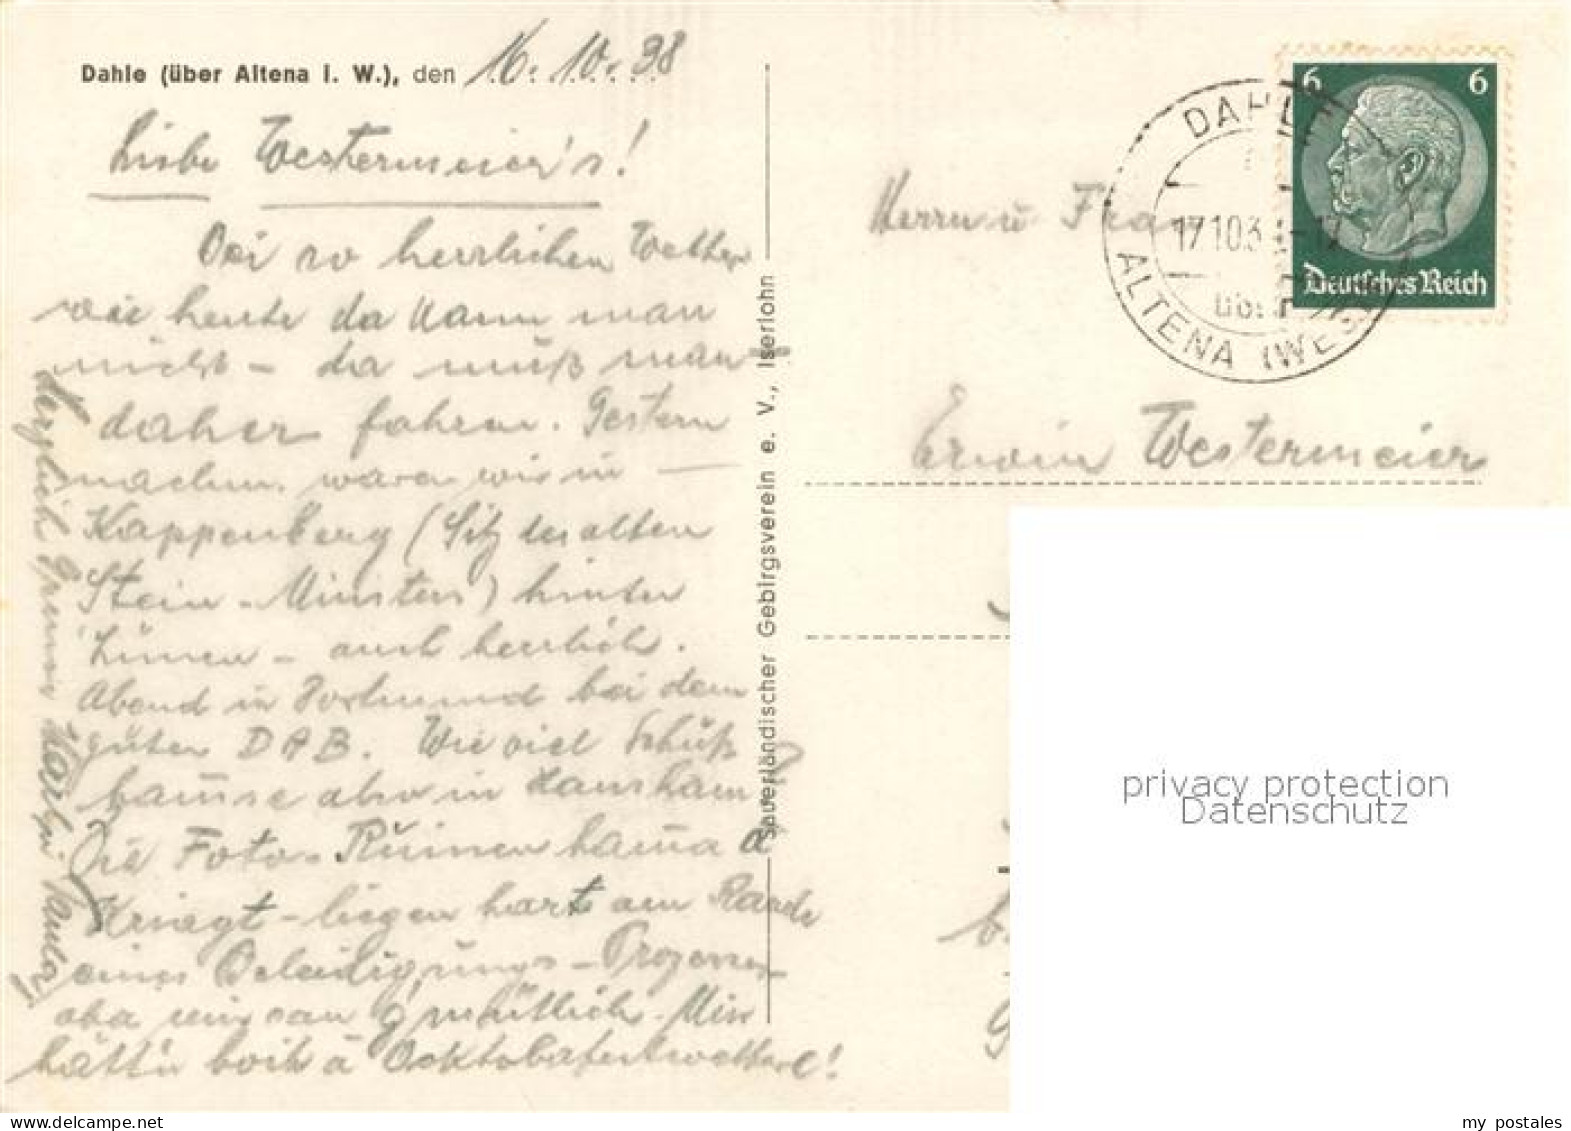 Dahle (über Altena i. W.), den 16.10.38
Liebe Westermeier's!
Bei so herrlichen Wetter
wie heute da kann man
nicht – da muß man
daher fahren. Gestern
waren wir in
Kappenberg (Sitz des alten
Stein-Ministers) hinter
Lünen – auch herrlich.
Abend in Dortmund bei dem
guten DAB. Wie viel Schuß
hamse also in
Die Foto-Ruinen hama a
Kriagt – liegen hart am Rande
eines Beleidigungs-Prozesses
aba mir san g'mütlich. Mir
hätt'n boih a Ocktobafestwetter!
Herzlich Grüsse
Sauerländischer Gebirgsverein e. V., Iserlohn
Herrn u Frau
Erwin Westermeier
6 6
Deutsches Reich
DAHLE
17.10.3
über
ALTENA (WESTF
privacy protection
Datenschutz
my postales